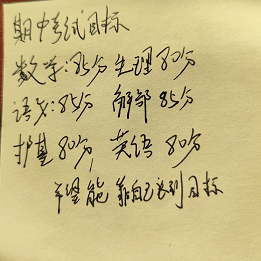 期中考试目标
数学:85分 生理80分
语文:85分 解剖85分
护基80分, 英语80分
希望能靠自己达到目标